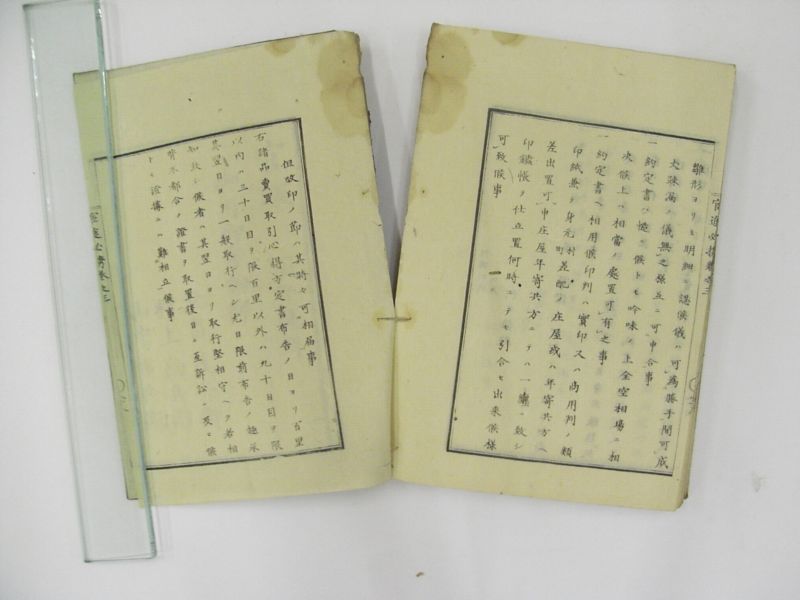 雛形ヨリモ明細ニ認候儀ハ可為勝手間可成
丈疎漏ノ儀無之様互ニ可申合事
一約定書ハ慥ニ候トモ吟味ノ上全空相場ニ相
次候上ハ相當ノ處置可有之事
一約定書ヘ相用候印判ハ實印又ハ商用判ノ類
印紙兼テ身元村町差配ノ庄屋或ハ年寄共方ヘ
差出置可申庄屋年寄共方ニテハ一纏ニ致シ
印鑑帳ヲ仕立置何時ニテモ引合セ出来候様
可致候事
但改印ノ節ハ其時々可相届事
右諸品賣買取引心得方定書布告ノ日ヨリ百里
以内ハ三十日目ヲ限百里以外ハ九十日目ヲ限
其翌日ヨリ一般取行ヘシ尤日限前布告ノ趣承
知致シ候者ハ其翌日ヨリ取行堅相守ヘク若相
背不都合ノ證書ヲ取置後日ニ至訴訟ニ及ヒ候
トモ證據ニハ難相立候事